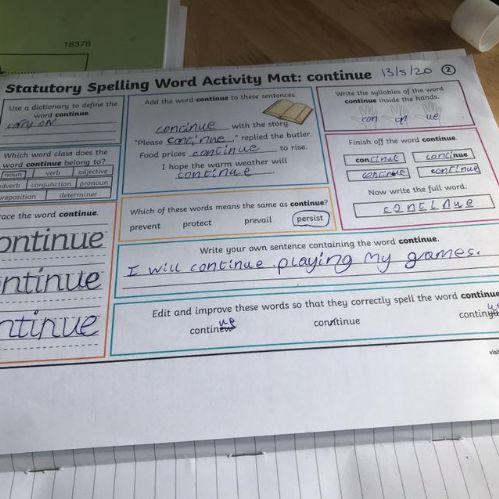 18376
Statutory Spelling Word Activity Mat: continue 13/5/20 2
Use a dictionary to define the
word continue.
carry on
Which word class does the
word continue belong to?
noun verb adjective
adverb conjunction pronoun
preposition determiner
race the word continue.
ontinue
ntinue
ntinue
Add the word continue to these sentences.
continue with the story
"Please continue," replied the butler.
Food prices continue to rise.
I hope the warm weather will
continue
Which of these words means the same as continue?
prevent protect prevail persist
Write the syllables of the word
continue inside the hands.
con ue
Finish off the word continue.
continue continue
continue continue
Now write the full word.
continue
Write your own sentence containing the word continue.
I will continue playing my games.
Edit and improve these words so that they correctly spell the word continue
ue
continew conttinue
visi